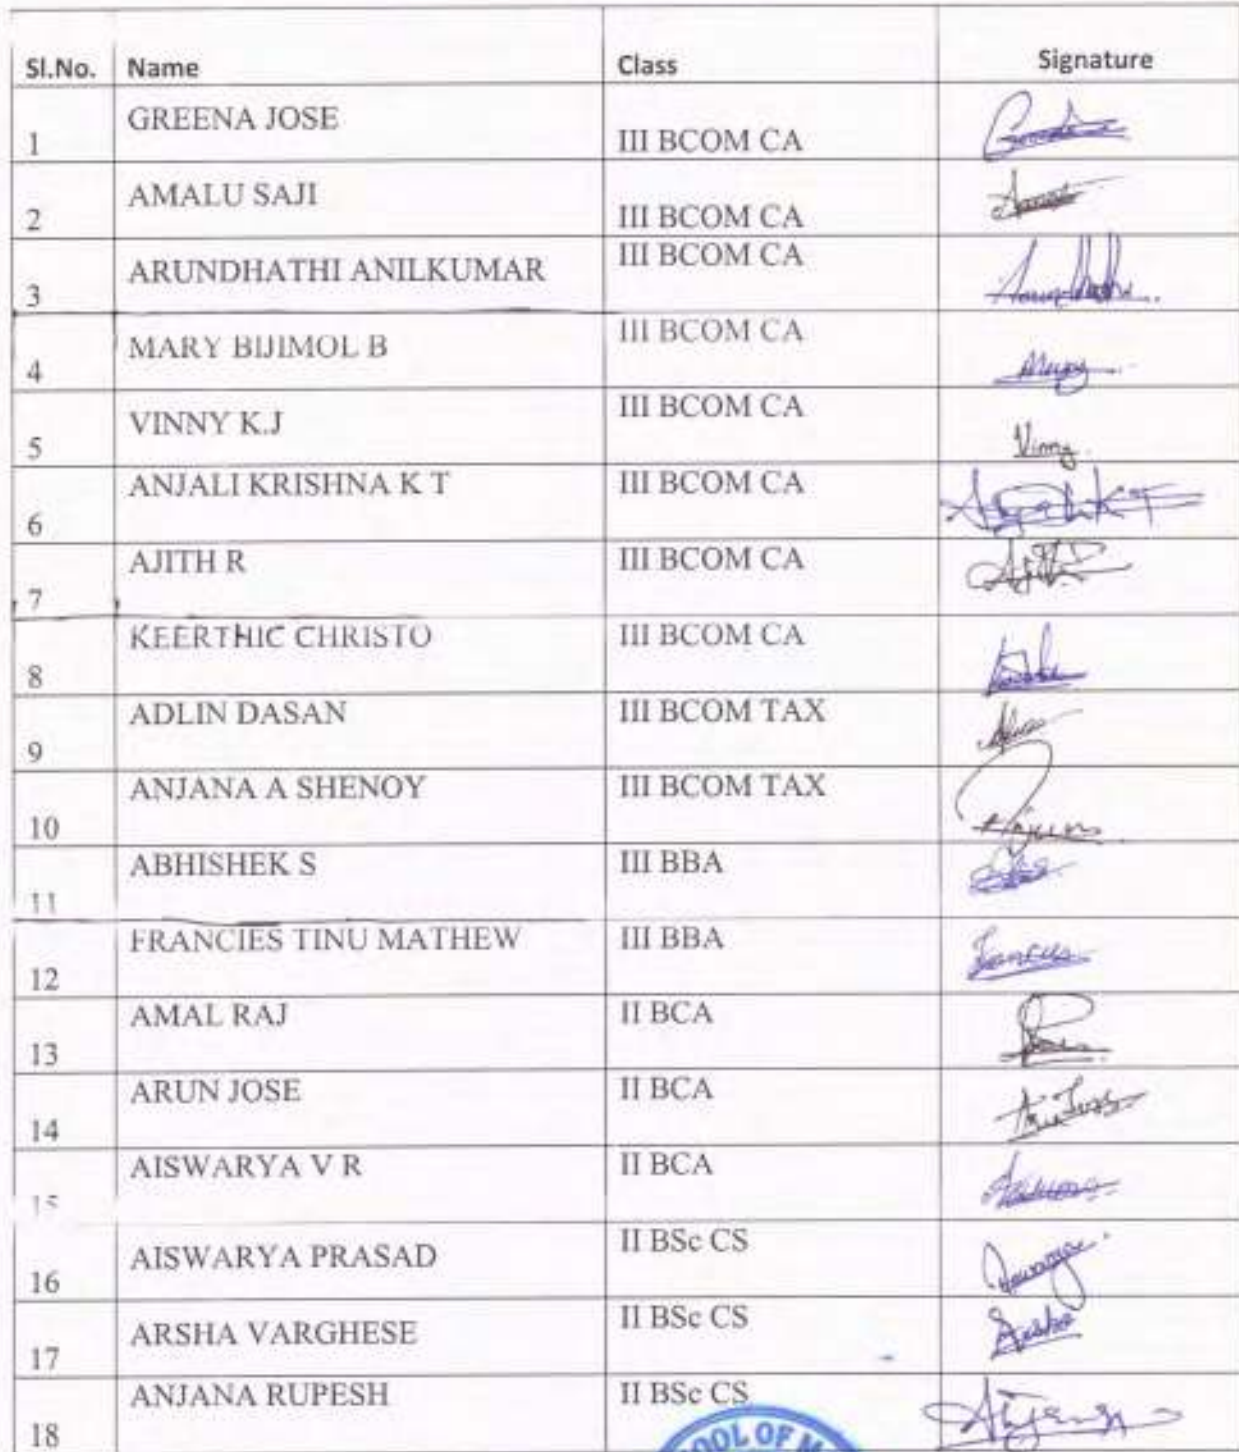 Sl.No. Name Class Signature
1 GREENA JOSE III BCOM CA
2 AMALU SAJI III BCOM CA
3 ARUNDHATHI ANILKUMAR III BCOM CA
4 MARY BIJIMOL B III BCOM CA
5 VINNY K.J III BCOM CA Vinny
6 ANJALI KRISHNA K T III BCOM CA
7 AJITH R III BCOM CA
8 KEERTHIC CHRISTO III BCOM CA
9 ADLIN DASAN III BCOM TAX
10 ANJANA A SHENOY III BCOM TAX
11 ABHISHEK S III BBA
12 FRANCIES TINU MATHEW III BBA
13 AMAL RAJ II BCA
14 ARUN JOSE II BCA
15 AISWARYA V R II BCA
16 AISWARYA PRASAD II BSc CS
17 ARSHA VARGHESE II BSc CS
18 ANJANA RUPESH II BSc CS
OF